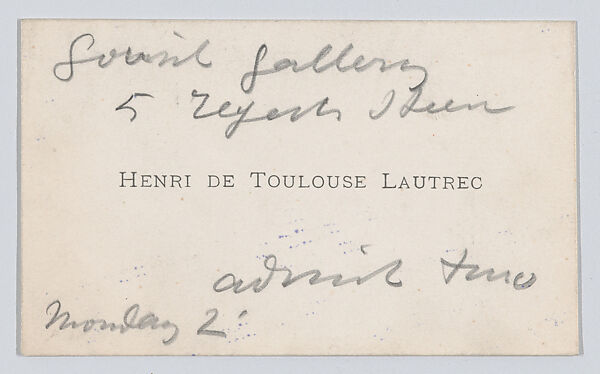 Goupil gallery
5 Regent Street
HENRI DE TOULOUSE LAUTREC
admit two
Monday 2